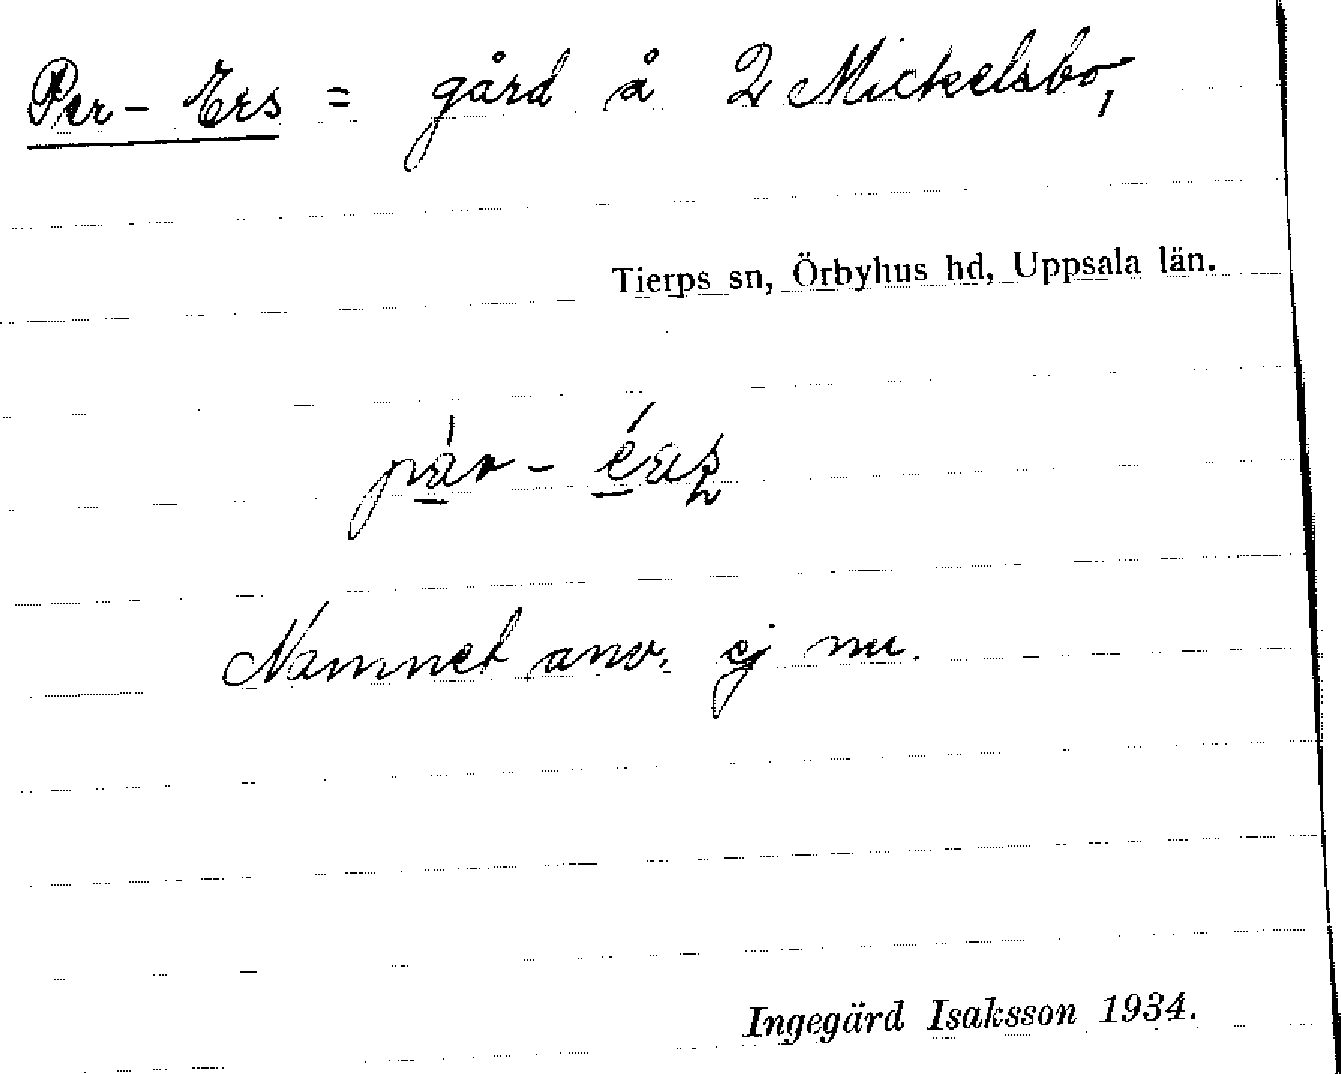 Per-Ers = gård å 2 Mickelsbo,
Tierps sn, Örbyhus hd, Uppsala län.
Namnet anv. ej nu.
Ingegärd Isaksson 1934.